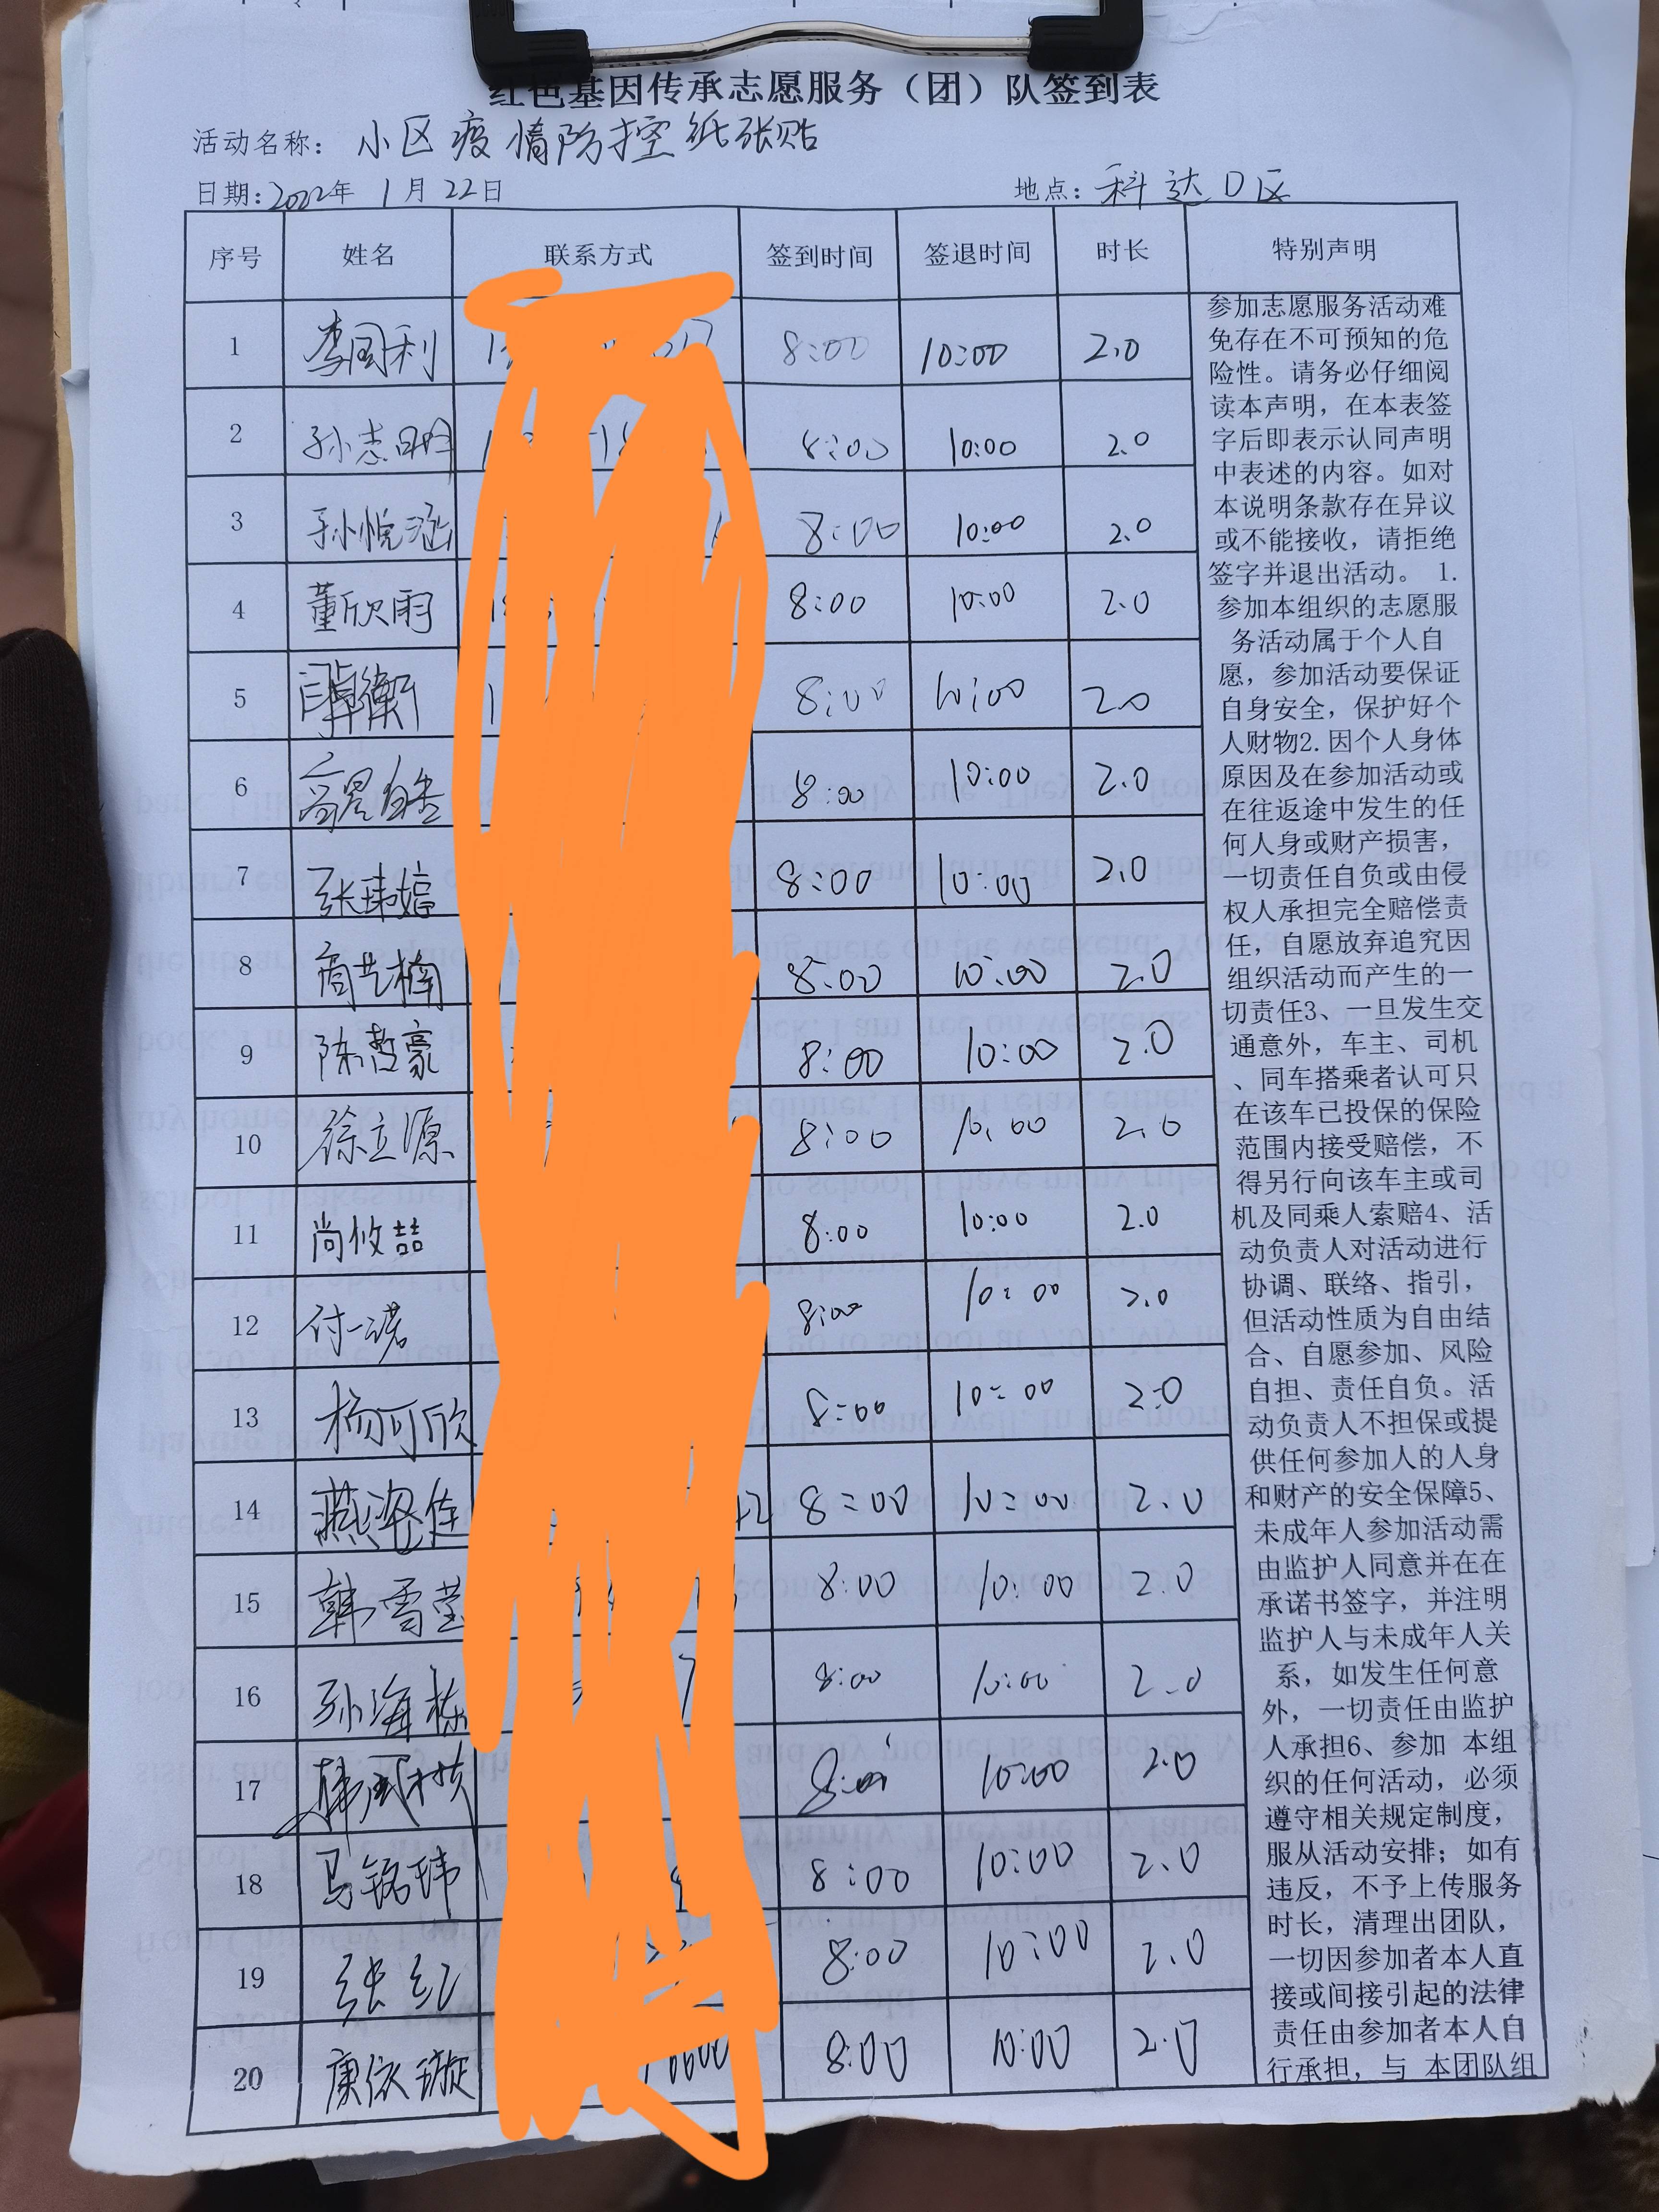 红色基因传承志愿服务（团）队签到表
活动名称：小区疫情防控纸张贴
日期：2022年 1月 22日 地点：科达D区
序号 姓名 联系方式 签到时间 签退时间 时长 特别声明
1 李国利 8:00 10:00 2.0
2 孙志明 8:00 10:00 2.0
3 孙悦涵 8:00 10:00 2.0
4 董欣雨 8:00 10:00 2.0
5 8:00 10:00 2.0
6 8:00 10:00 2.0
7 张玮婷 8:00 10:00 2.0
8 8:00 10:00 2.0
9 陈哲豪 8:00 10:00 2.0
10 徐立源 8:00 10:00 2.0
11 尚攸喆 8:00 10:00 2.0
12 付一诺 8:00 10:00 2.0
13 杨可欣 8:00 10:00 2.0
14 燕姿佳 8:00 10:00 2.0
15 韩雪莹 8:00 10:00 2.0
16 孙海栋 8:00 10:00 2.0
17 8:00 10:00 2.0
18 马铭玮 8:00 10:00 2.0
19 张红 8:00 10:00 2.0
20 依璇 8:00 10:00 2.0
参加志愿服务活动难
免存在不可预知的危
险性。请务必仔细阅
读本声明，在本表签
字后即表示认同声明
中表述的内容。如对
本说明条款存在异议
或不能接收，请拒绝
签字并退出活动。 1.
参加本组织的志愿服
务活动属于个人自
愿，参加活动要保证
自身安全，保护好个
人财物2.因个人身体
原因及在参加活动或
在往返途中发生的任
何人身或财产损害，
一切责任自负或由侵
权人承担完全赔偿责
任，自愿放弃追究因
组织活动而产生的一
切责任3、一旦发生交
通意外，车主、司机
、同车搭乘者认可只
在该车已投保的保险
范围内接受赔偿，不
得另行向该车主或司
机及同乘人索赔4、活
动负责人对活动进行
协调、联络、指引，
但活动性质为自由结
合、自愿参加、风险
自担、责任自负。活
动负责人不担保或提
供任何参加人的人身
和财产的安全保障5、
未成年人参加活动需
由监护人同意并在在
承诺书签字，并注明
监护人与未成年人关
系，如发生任何意
外，一切责任由监护
人承担6、参加 本组
织的任何活动，必须
遵守相关规定制度，
服从活动安排；如有
违反，不予上传服务
时长，清理出团队，
一切因参加者本人直
接或间接引起的法律
责任由参加者本人自
行承担，与 本团队组